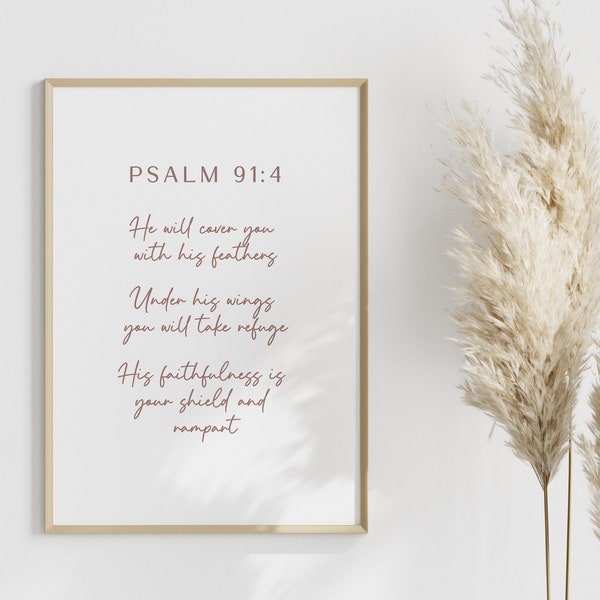 PSALM 91:4
He will cover you
with his feathers
Under his wings
you will take refuge
His faithfulness is
your shield and
rampart